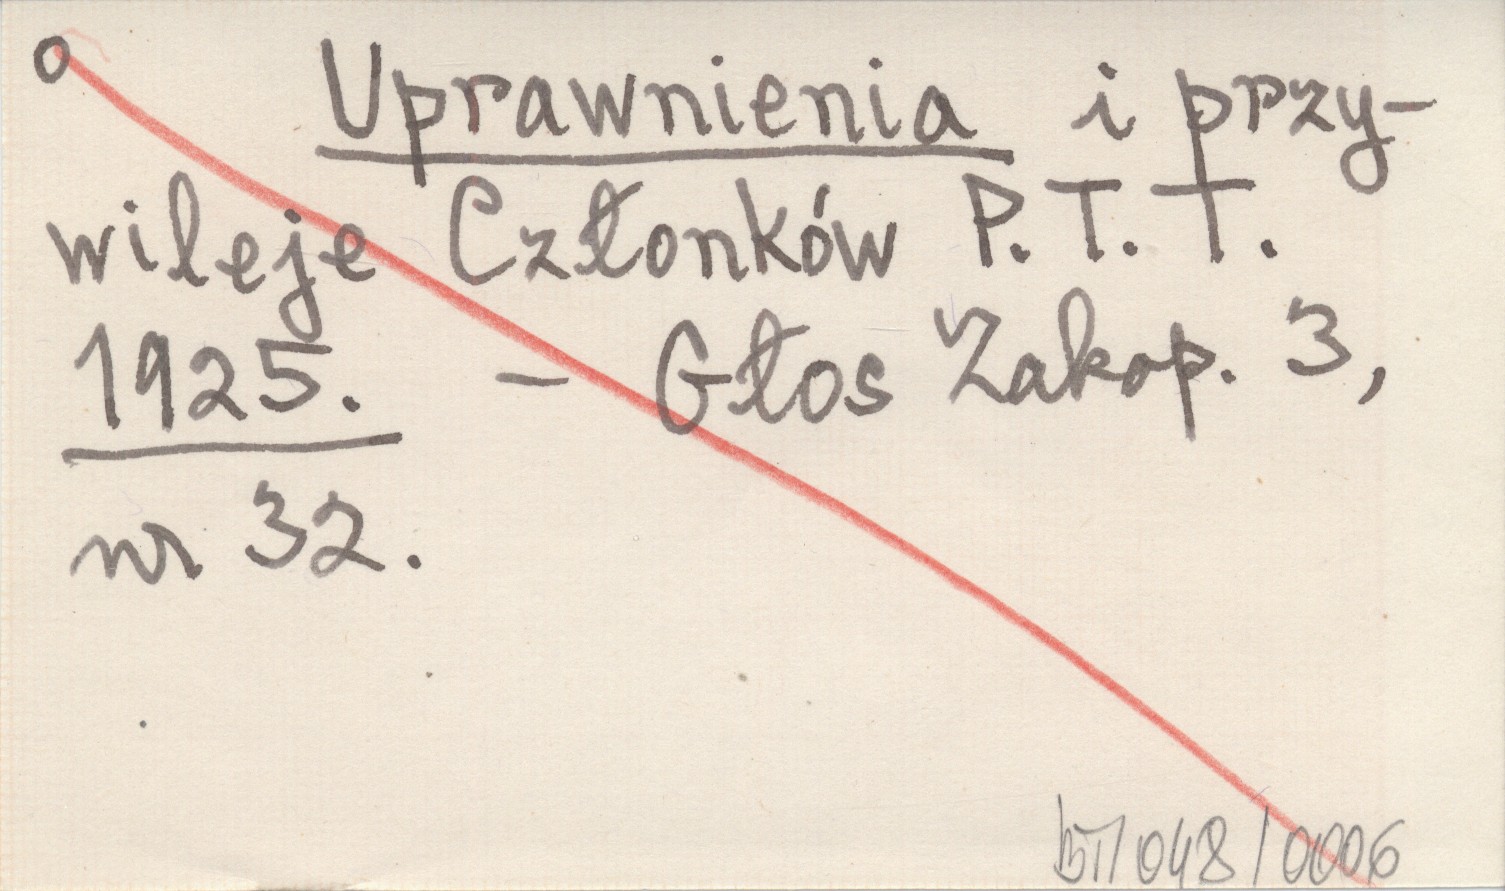 o Uprawnienia i przy-
wileje Członków P.T.T.
1925. - Głos Zakop. 3,
nr 32.
BT/048/0006